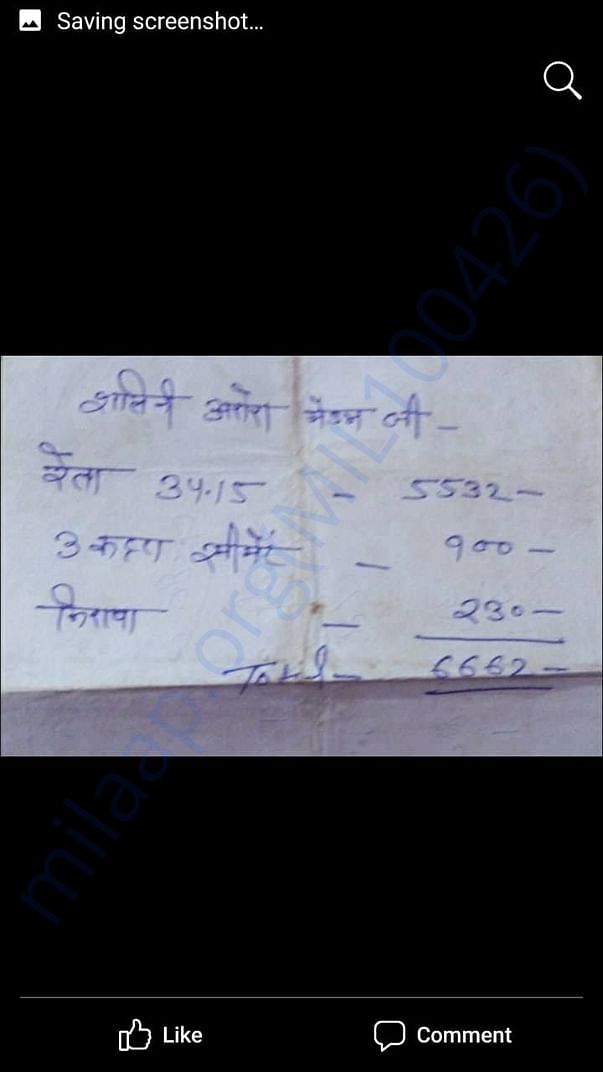 Saving screenshot...
शालिनी अरोरा मैडम जी -
रेता 34.15 - 5532 -
3 कट्टा सीमेंट - 900 -
किराया - 230 -
Total - 6662 -
milaap.org(MIL100426)
Like
Comment